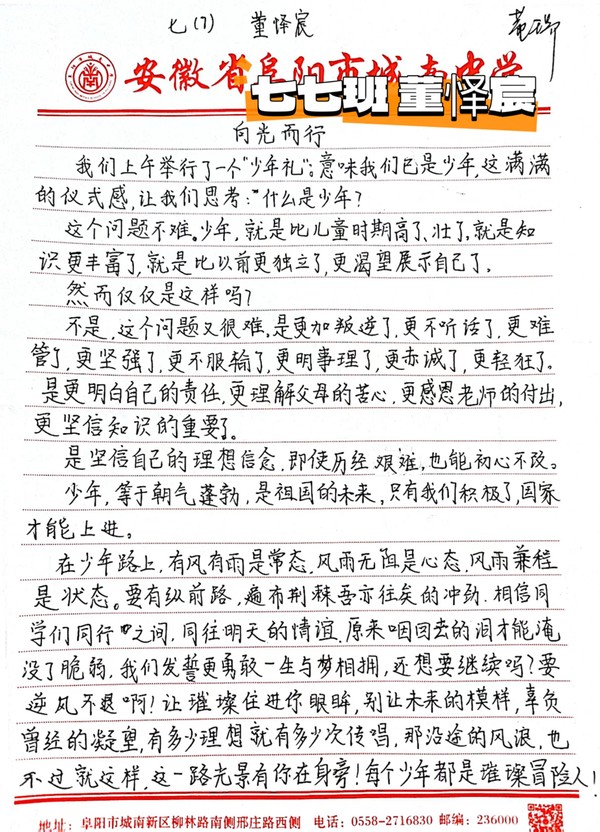 七(7) 董怿宸
安徽省阜阳市城南中学
七七班 董怿宸
向光而行
我们上午举行了一个“少年礼”。意味我们已是少年,这满满
的仪式感,让我们思考:“什么是少年?
这个问题不难。少年,就是比儿童时期高了、壮了,就是知
识更丰富了,就是比以前更独立了,更渴望展示自己了。
然而仅仅是这样吗?
不是,这个问题又很难。是更加叛逆了,更不听话了,更难
管了,更坚强了,更不服输了,更明事理了,更赤诚了,更轻狂了。
是更明白自己的责任,更理解父母的苦心,更感恩老师的付出,
更坚信知识的重要了。
是坚信自己的理想信念,即使历经艰难,也能初心不改。
少年,等于朝气蓬勃,是祖国的未来,只有我们积极了,国家
才能上进。
在少年路上,有风有雨是常态,风雨无阻是心态,风雨兼程
是状态。要有纵前路,遍布荆棘吾亦往矣的冲劲.相信同
学们同行之间,同往明天的情谊,原来咽回去的泪才能淹
没了脆弱,我们发誓更勇敢一生与梦相拥,还想要继续吗?要
逆风不退啊!让璀璨住进你眼眸,别让未来的模样,辜负
曾经的凝望,有多少理想就有多少次传唱,那沿途的风浪,也
不过就这样,这一路光景有你在身旁!每个少年都是璀璨冒险人!
地址:阜阳市城南新区柳林路南侧邢庄路西侧 电话:0558-2716830 邮编:236000